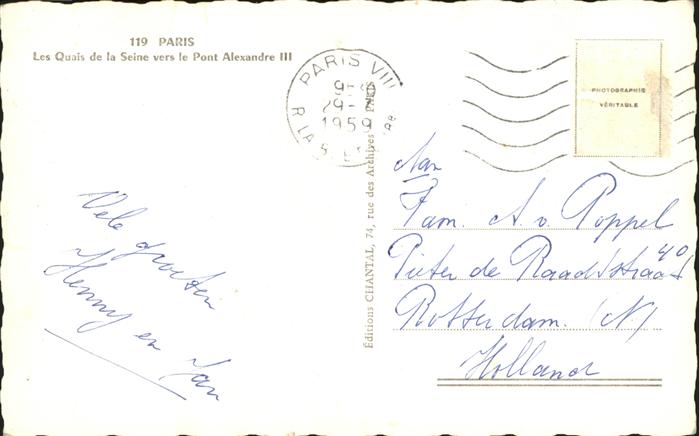 119 PARIS
Les Quais de la Seine vers le Pont Alexandre III
PARIS VIII
1959
R LA
PHOTOGRAPHIE
VÉRITABLE
Éditions CHANTAL, 74, rue des Archives PARIS
Vele groeten
Henny en Jan
Aan
Fam. A. v. Poppel
Pieter de Raadtstraat 40
Rotterdam. (N)
Holland